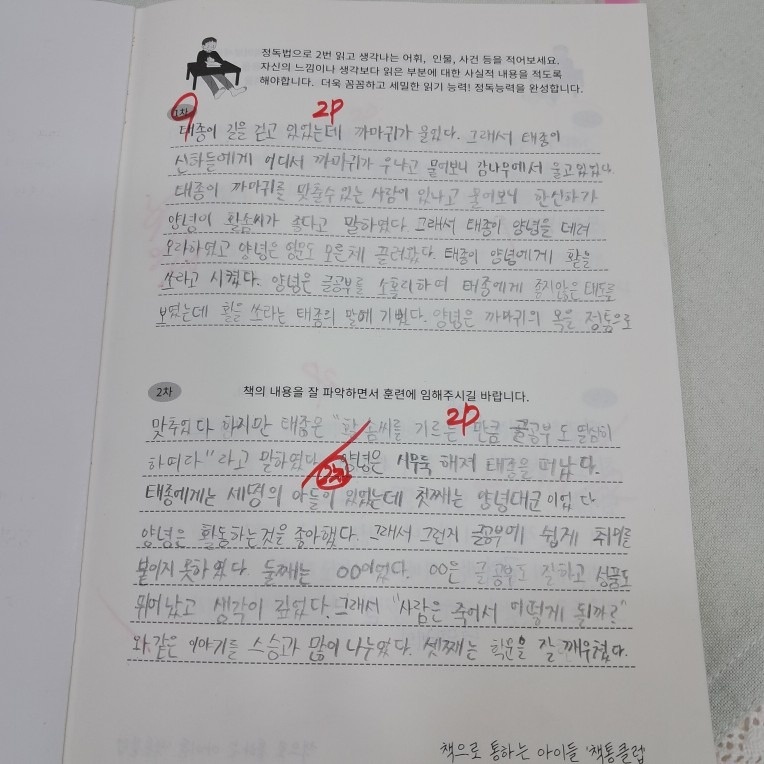 정독법으로 2번 읽고 생각나는 어휘, 인물, 사건 등을 적어보세요.
자신의 느낌이나 생각보다 읽은 부분에 대한 사실적 내용을 적도록
해야합니다. 더욱 꼼꼼하고 세밀한 읽기 능력! 정독능력을 완성합니다.
1차
2p
태종이 길을 걷고 있었는데 까마귀가 울었다. 그래서 태종이
신하들에게 어디서 까마귀가 우냐고 물어보니 감나무에서 울고있었다
태종이 까마귀를 맞출수있는 사람이 있냐고 물어보니 한신하가
양녕이 활솜씨가 좋다고 말하였다. 그래서 태종이 양녕을 데려
오라하였고 양녕은 영문도 모른체 끌려갔다. 태종이 양녕에게 활을
쏘라고 시켰다. 양녕은 글공부를 소홀리하여 태종에게 좋지않은 태도를
보였는데 활을 쏘라는 태종의 말에 기뻤다. 양녕은 까마귀의 목을 정통으로
2차
책의 내용을 잘 파악하면서 훈련에 임해주시길 바랍니다.
2p
맞추었다 하지만 태종은 "활솜씨를 기르는 만큼 글공부도 열심히
하여라" 라고 말하였다. 양녕은 시무룩 해져 태종을 떠났다.
태종에게는 세명의 아들이 있었는데 첫째는 양녕대군이었다
양녕은 활동하는것을 좋아했다. 그래서 그런지 글공부에 쉽게 취미를
붙이지 못하였다. 둘째는 OO이었다. OO은 글공부도 잘하고 성품도
뛰어났고 생각이 깊었다. 그래서 "사람은 죽어서 어떻게 될까?"
와 같은 이야기를 스승과 많이 나누었다. 셋째는 학문을 잘 깨우쳤다.
책으로 통하는 아이들 '책통클럽'